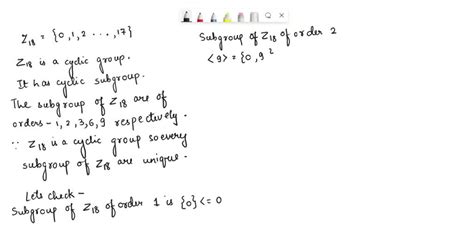 Z18 = {0,1,2 ...,17}
Z18 is a cyclic group.
It has cyclic subgroup.
The subgroup of Z18 are of
orders - 1, 2, 3, 6, 9 respectively.
∵ Z18 is a cyclic group so every
subgroup of Z18 are unique.
Lets check -
Subgroup of Z18 of order 1 is {0} <= 0
Subgroup of Z18 of order 2
<9> = {0, 9